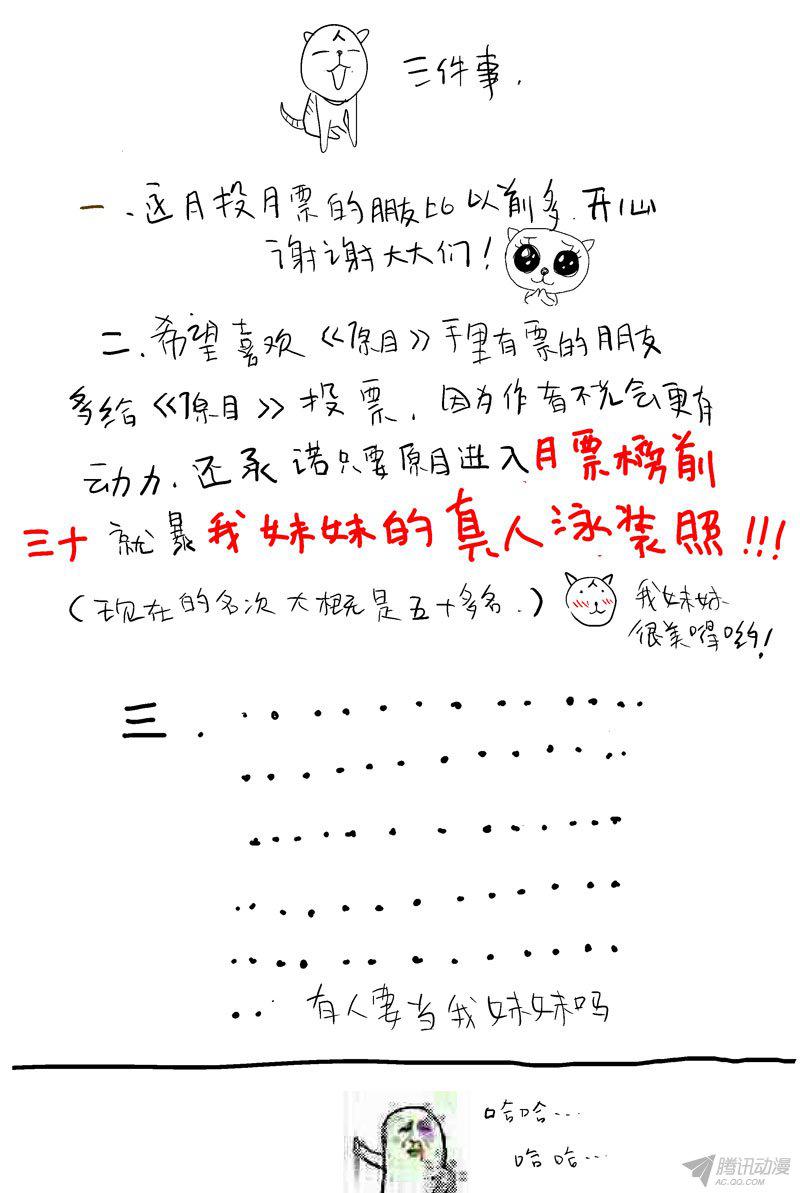 三件事.
一、这月投月票的朋友比以前多.开心
谢谢大大们!
二、希望喜欢《原目》手里有票的朋友
多给《原目》投票.因为作者不光会更有
动力.还承诺只要原目进入月票榜前
三十就暴我妹妹的真人泳装照!!!
(现在的名次大概是五十多名.)
我妹妹
很美嘚哟!
三.
有人要当我妹妹吗
哈哈...
哈哈...
腾讯动漫
AC.QQ.COM